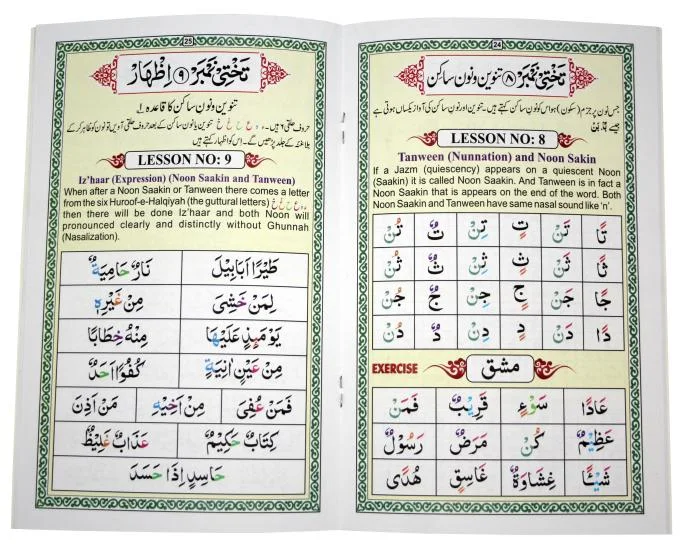 24
تختی نمبر ۸ تنوین و نون ساکن
جس نون پر جزم (سکون) ہو اس کو نون ساکن کہتے ہیں۔ تنوین اور نون ساکن کی آواز یکساں ہوتی ہے
جیسے
LESSON NO: 8
Tanween (Nunnation) and Noon Sakin
If a Jazm (quiescency) appears on a quiescent Noon
(Saakin) it is called Noon Saakin. And Tanween is in fact a
Noon Saakin that is appears on the end of the word. Both
Noon Saakin and Tanween have same nasal sound like 'n'.
تًا تَنْ تٍ تِنْ تٌ تُنْ
ثًا ثَنْ ثٍ ثِنْ ثٌ ثُنْ
جًا جَنْ جٍ جِنْ جٌ جُنْ
دًا دَنْ دٍ دِنْ دٌ دُنْ
EXERCISE مشق
عَادًا سَوْءٍ قَرِيْبٌ فَمَنْ
عَظِيْمٌ كُنْ مَرَضٌ رَسُوْلٌ
شَيْئًا غِشَاوَةٌ غَاسِقٍ هُدًى
25
تختی نمبر ۹ اظہار
تنوین و نون ساکن کا قاعدہ ۱
حروف حلقی ۶ ہیں۔ ء ہ ع ح غ خ تنوین یا نون ساکن کے بعد حروف حلقی آویں تو نون کو ظاہر کر کے
بلا غنہ کے جلد پڑھیں گے۔ اس کو اظہار کہتے ہیں
LESSON NO: 9
Iz'haar (Expression) (Noon Saakin and Tanween)
When after a Noon Saakin or Tanween there comes a letter
from the six Huroof-e-Halqiyah (the guttural letters) ء ہ ع ح غ خ
then there will be done Iz'haar and both Noon will
pronounced clearly and distinctly without Ghunnah
(Nasalization).
طَيْرًا اَبَابِيْلَ نَارٌ حَامِيَةٌ
لِمَنْ خَشِيَ مِنْ غَيْرِهٖ
يَوْمَئِذٍ عَلَيْهَا مِنْهُ خِطَابًا
مِنْ عَيْنٍ اٰنِيَةٍ كُفُوًا اَحَدٌ
فَمَنْ عُفِيَ مِنْ اَخِيْهِ مَنْ اَذِنَ
كِتَابٌ حَكِيْمٌ عَذَابٌ غَلِيْظٌ
حَاسِدٍ اِذَا حَسَدَ